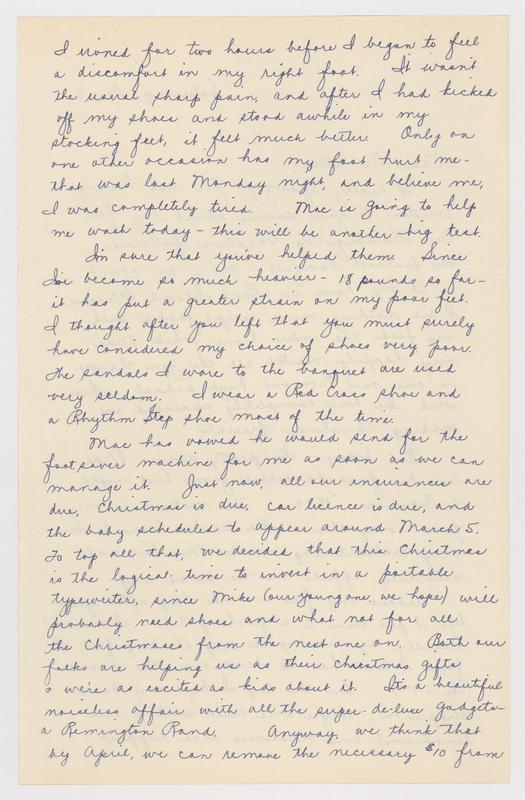 I ironed for two hours before I began to feel
a discomfort in my right foot. It wasn't
the usual sharp pain, and after I had kicked
off my shoes and stood awhile in my
stocking feet, it felt much better. Only on
one other occasion has my foot hurt me -
that was last Monday night, and believe me,
I was completely tired. Mac is going to help
me wash today - this will be another big test.
I'm sure that you've helped them. Since
I've become so much heavier - 18 pounds so far -
it has put a greater strain on my poor feet.
I thought after you left that you must surely
have considered my choice of shoes very poor.
The sandals I wore to the banquet are used
very seldom. I wear a Red Cross shoe and
a Rhythm Step shoe most of the time.
Mac has vowed he would send for the
foot saver machine for me as soon as we can
manage it. Just now, all our insurances are
due, Christmas is due, car licence is due, and
the baby scheduled to appear around March 5.
To top all that, we decided that this Christmas
is the logical time to invest in a portable
typewriter, since Mike (our young one, we hope) will
probably need shoes and what not for all
the Christmases from the next one on. Both our
folks are helping us as their Christmas gifts
& we're as excited as kids about it. Its a beautiful
noiseless affair with all the super-de-luxe gadgets -
a Remington Rand. Anyway, we think that
by April, we can remove the necessary $10 from